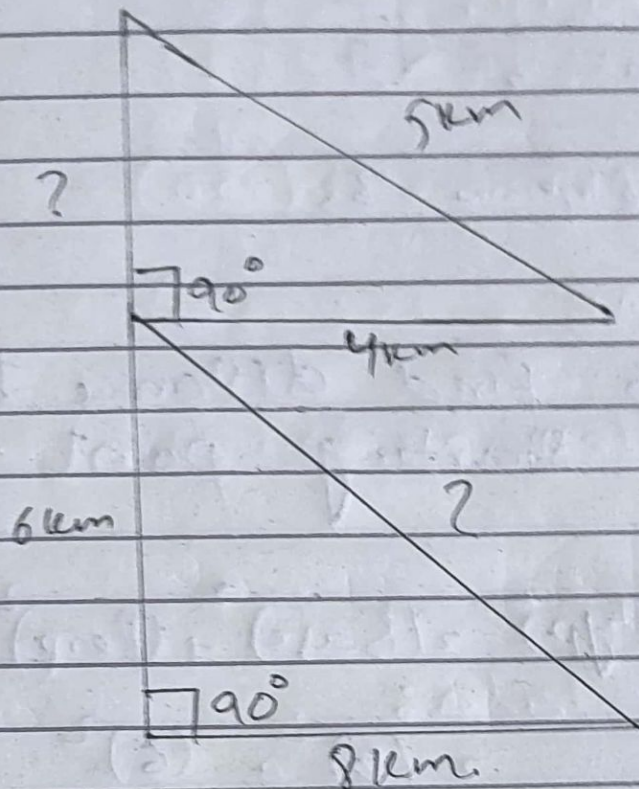 5km
?
90°
4km
?
6km
90°
8km.